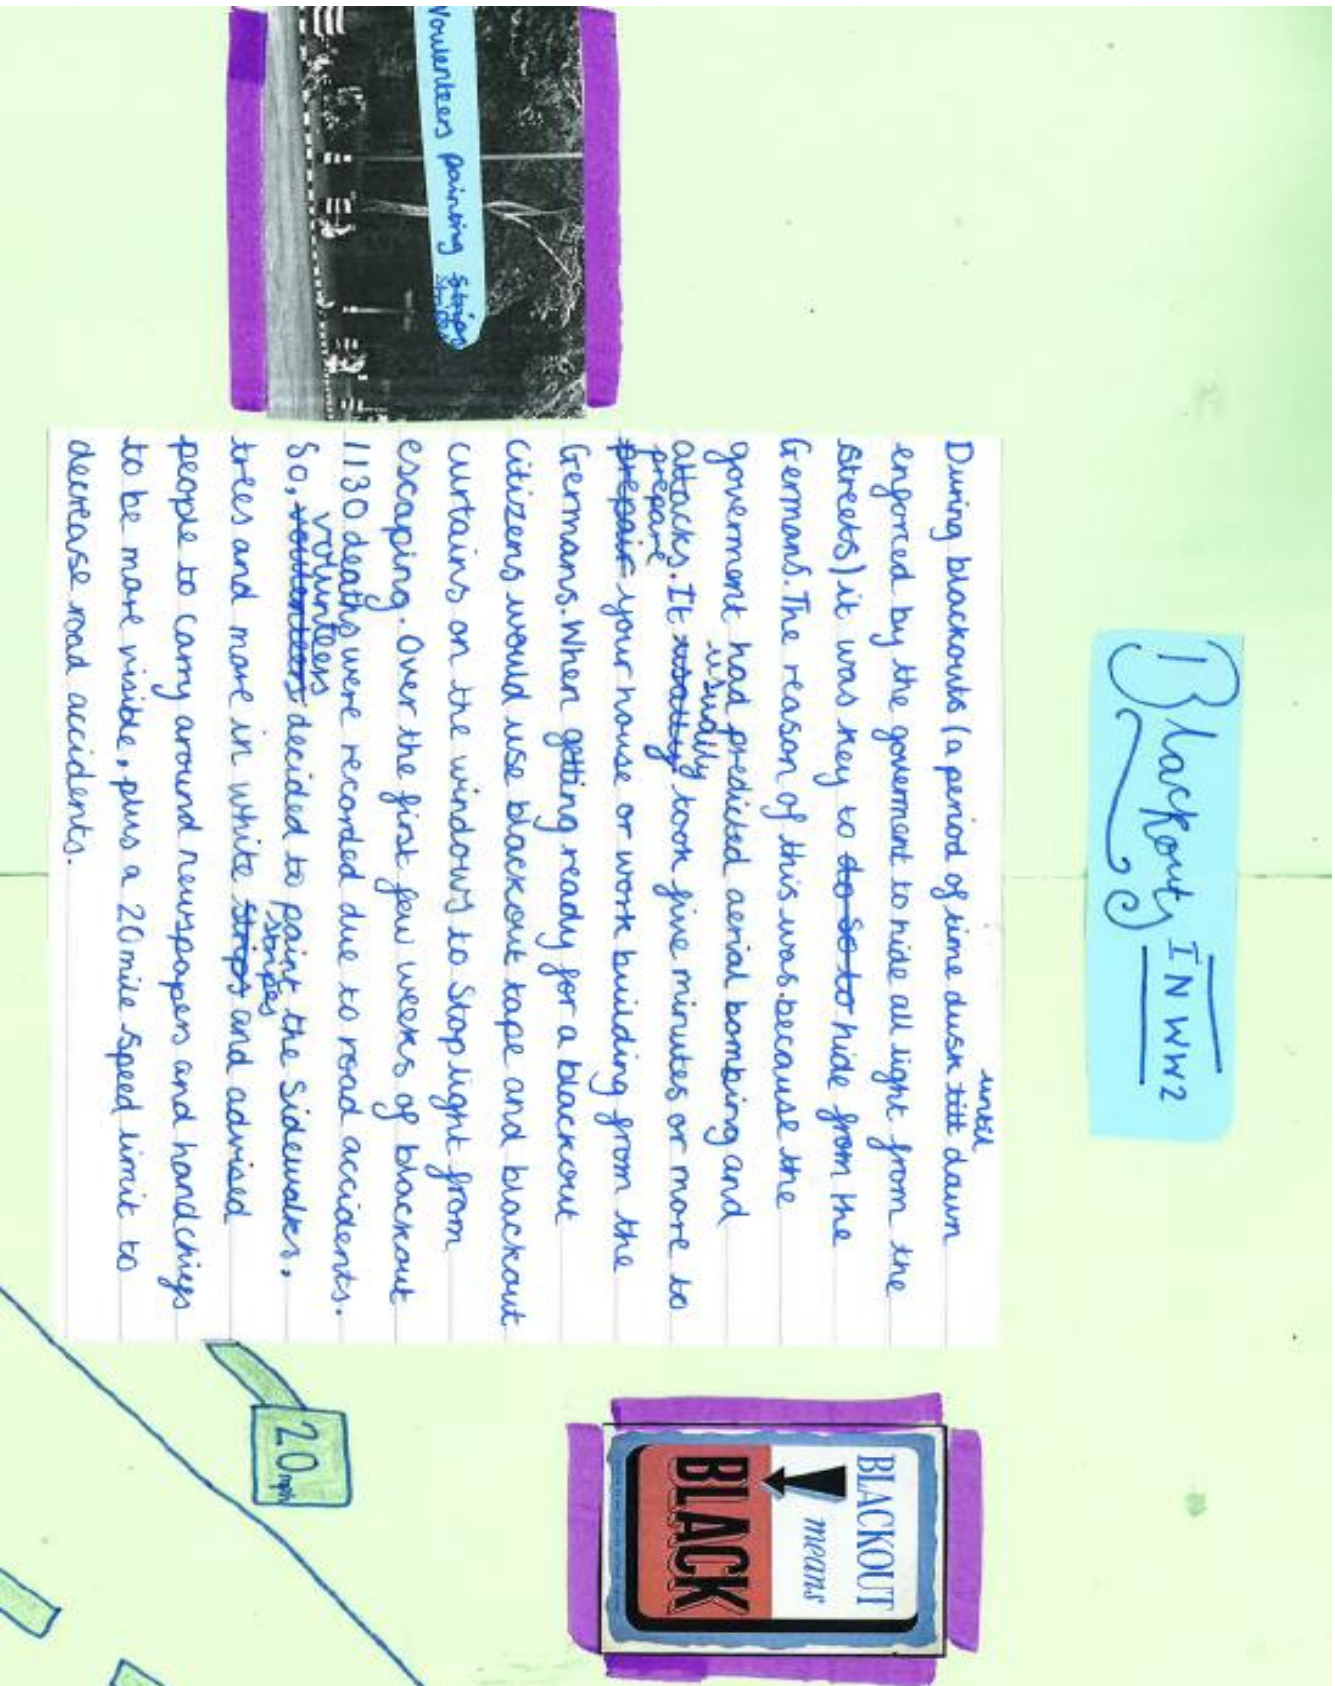 Blackouts IN WW2
Voulenteers painting strips
stripes
until
During blackouts (a period of time dusk till dawn
enforced by the goverment to hide all light from the
streets) it was key to do so to hide from the
Germans. The reason of this was because the
goverment had predicted aerial bombing and
usually
attacks. It usally took five minutes or more to
prepare
prepair your house or work building from the
Germans. When getting ready for a blackout
citizens would use blackout tape and blackout
curtains on the windows to stop light from
escaping. Over the first few weeks of blackout
1130 deaths were recorded due to road accidents.
volunteers
So, voulenteers decided to paint the sidewalks,
stripes
trees and more in white strips and advised
people to carry around newspapers and handchiefs
to be more visible, plus a 20 mile speed limit to
decrease road accidents.
BLACKOUT
means
BLACK
20 mph